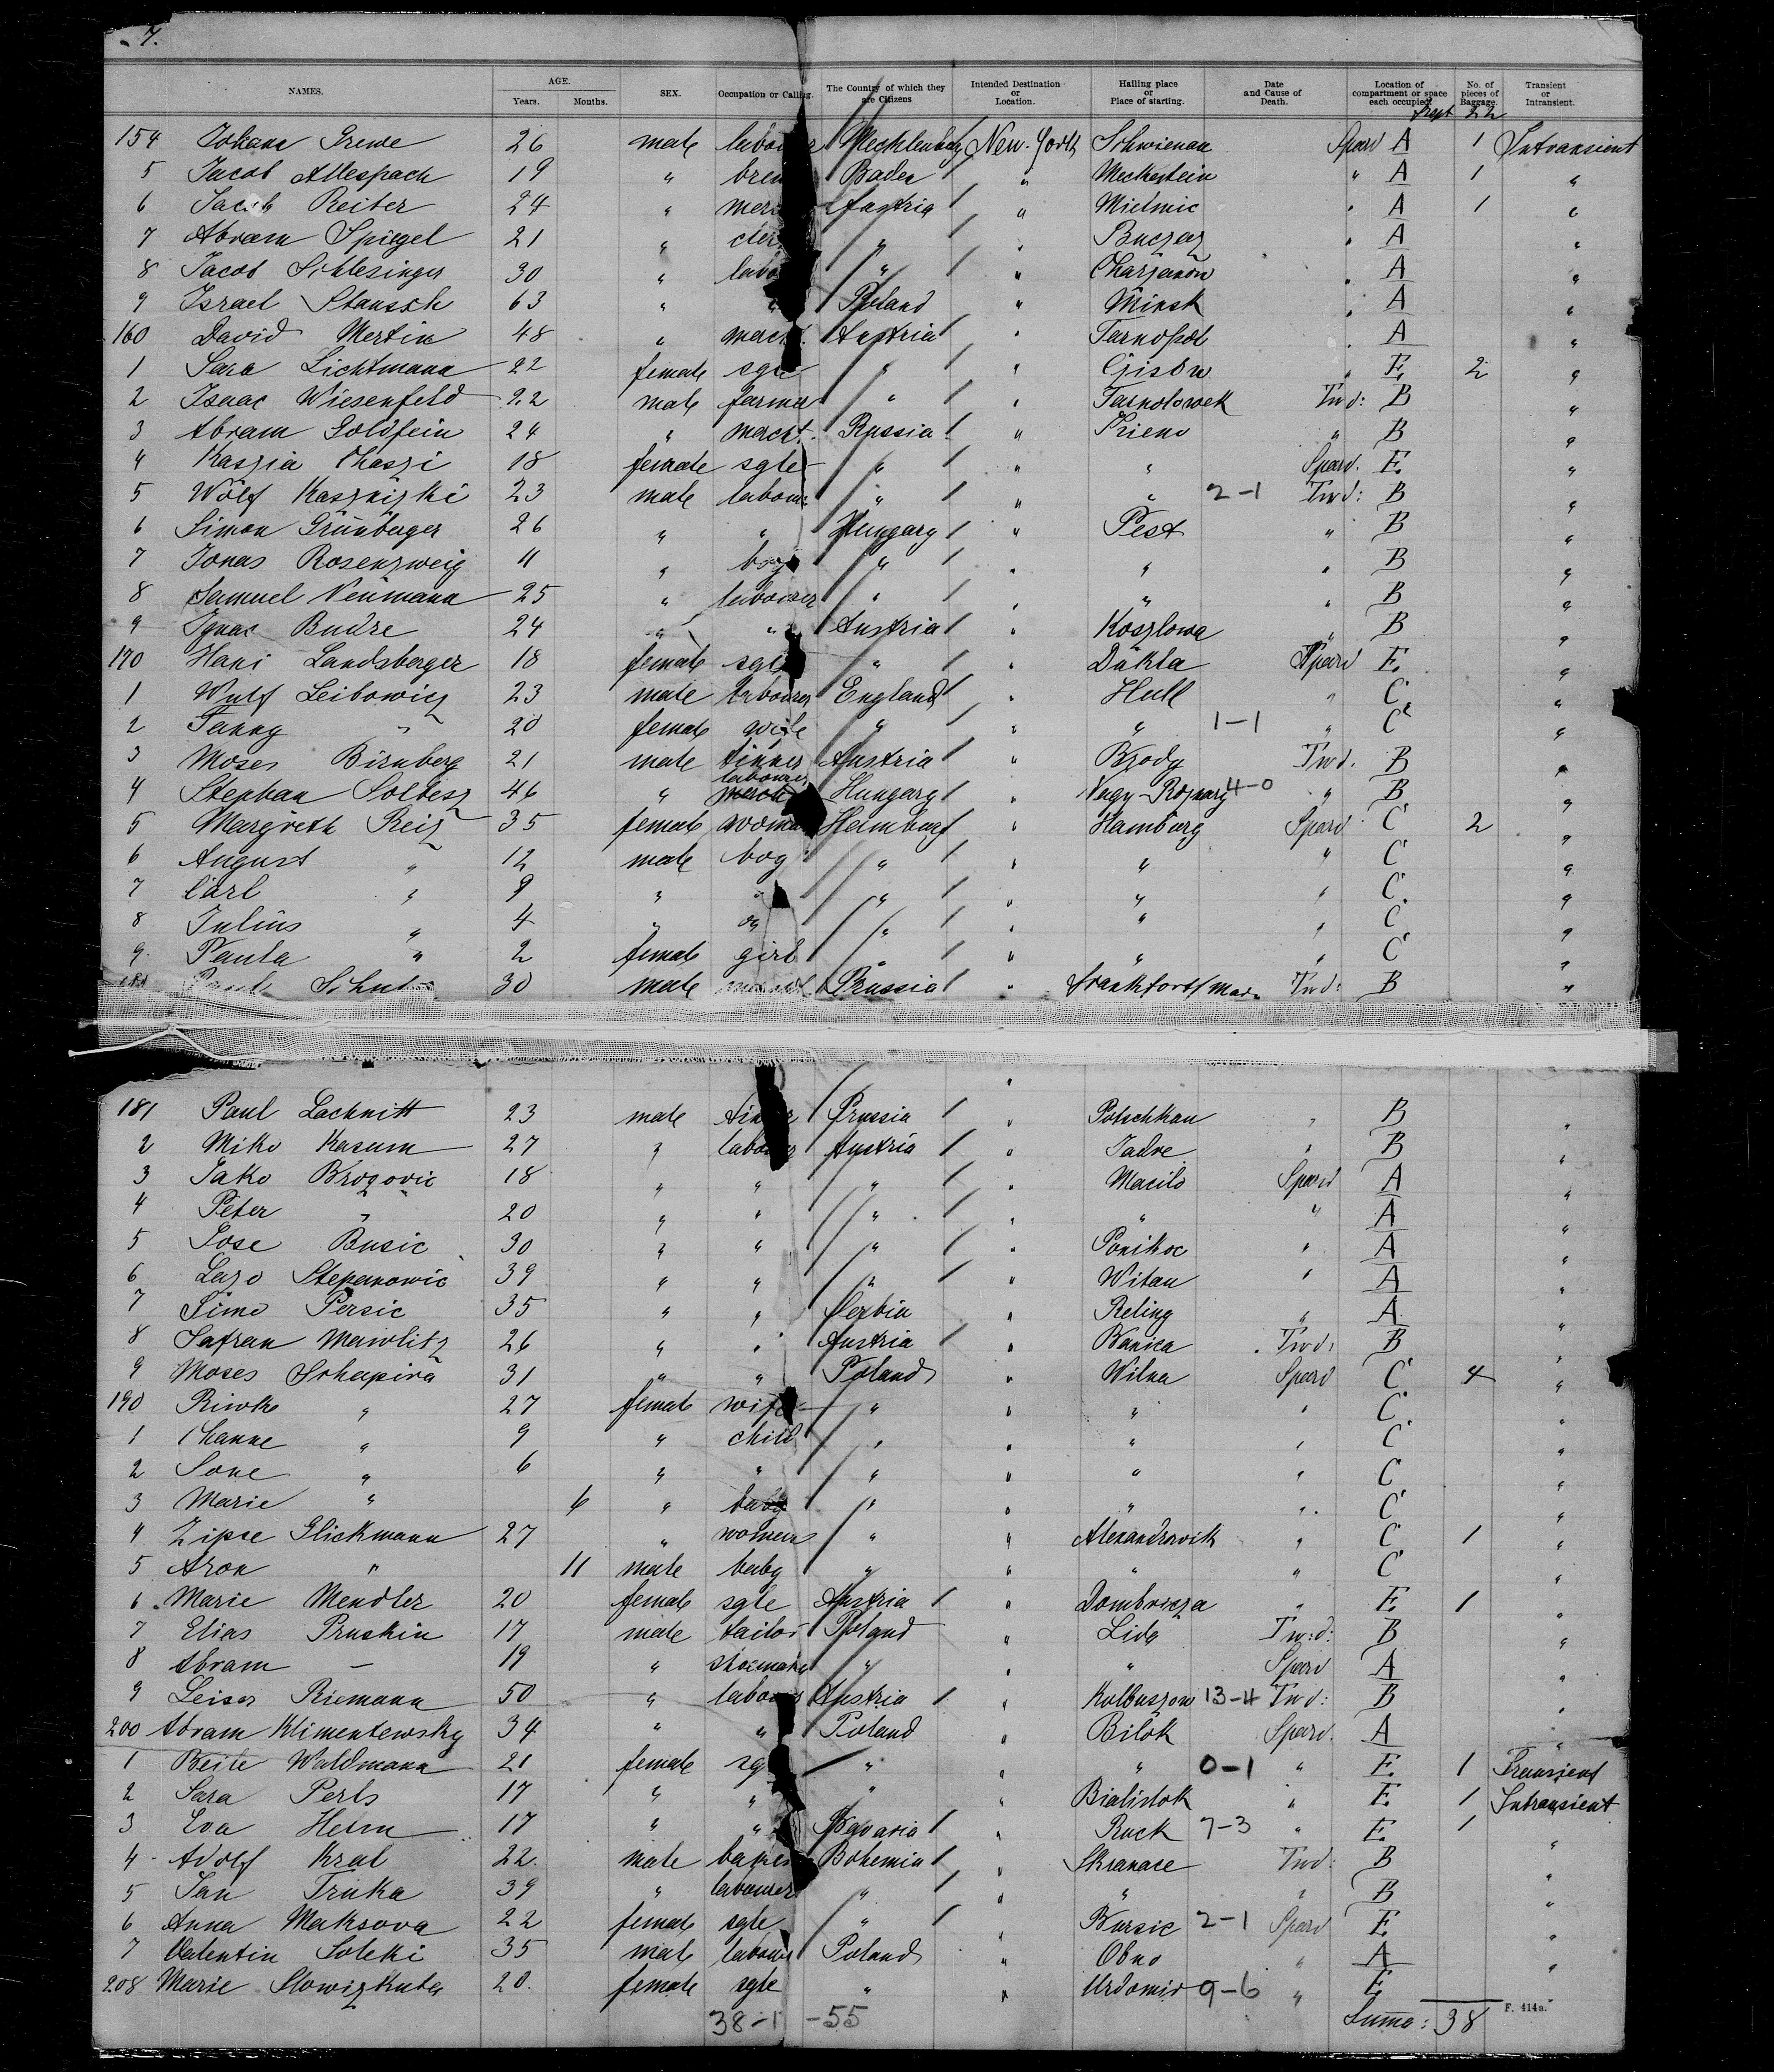 7.
NAMES. AGE. Years. Months. SEX. Occupation or Calling. The Country of which they are Citizens Intended Destination or Location. Hailing place or Place of starting. Date and Cause of Death. Location of compartment or space each occupied No. of pieces of Baggage. Transient or Intransient.
22
154 Johann Grewe 26 male labourer Mecklenburg New-York Schwienau Spard A 1 Intransient
5 Jacob Allespach 19 " Baden " Meckestein " A 1 "
6 Jacob Reiter 24 " Austria " Mielnic " A 1 "
7 Abram Spiegel 21 " " " Buczaz " A "
8 Jacob Schlesinger 30 " labo " " Charzanow " A "
9 Israel Stanssch 63 " " Poland " Minsk " A "
160 David Mertin 48 " mercht. Austria " Tarnopol " A "
1 Sara Lichtmann 22 female sgle " " Gisow " E. 2 "
2 Isaac Wiesenfeld 22 male farmer " " Tarnolowek Twd: B "
3 Abram Goldfein 24 " mercht. Russia " Prieno " B "
4 Kaszia Chaszi 18 female sgle " " " Spard. E. "
5 Wolf Kaszrizki 23 male labour " " " 2-1 Twd: B "
6 Simon Grünberger 26 " " Hungary " Pest " B "
7 Jonas Rosenzweig 11 " boy " " " " B "
8 Samuel Neumann 25 " labourer " " " " B "
9 Ignac Budre 24 " " Austria " Koszlowa " B "
170 Hani Landsberger 18 female sgle " " Dukla Spard E. "
1 Wulf Leibowicz 23 male labourer England " Hull " C "
2 Fanny " 20 female wife " " " 1-1 " C "
3 Moses Birnberg 21 male tinner Austria " Brody Twd. B "
labourer
4 Stephan Soltesz 46 " mercht Hungary " Nagy-Roznary 4-0 " B "
5 Margreth Reiz 35 female woman Hamburg " Hamburg Spard C 2 "
6 August " 12 male boy " " " " C "
7 Carl " 9 " " " " " " C. "
8 Julius " 4 " " " " " " C "
9 Paula " 2 female girl " " " " C "
180 Paul 30 male Prussia " Frankfort/Main Twd: B "
181 Paul Lachnitt 23 male tinner Prussia " Potschkau " B "
2 Miko Kasum 27 " labourer Austria " Jadre " B "
3 Jako Brozovic 18 " " " " Macilo Spard A "
4 Peter " 20 " " " " " " A "
5 Jose Busic 30 " " " " Ponikoc " A "
6 Lazo Stepanowic 39 " " " " Witau " A "
7 Simo Persic 35 " " Serbia " Reling " A "
8 Safran Mawlitz 26 " " Austria " Banica Twd: B "
9 Moses Schapira 31 " " Poland " Wilna Spard C 4 "
190 Riwke " 27 female wife " " " " C "
1 Channe " 9 " child " " " " C "
2 Sone " 6 " " " " " " C "
3 Marie " 6 " baby " " " " C "
4 Zipse Glickmann 27 " woman " " Alexandrowik " C 1 "
5 Aron " 11 male baby " " " " C "
6 Marie Mendler 20 female sgle Austria " Dombricza " E. 1 "
7 Elias Pruskin 17 male tailor Poland " Lida Twd: B "
8 Abram — 19 " shoemaker " " " Spard A "
9 Leiser Riemann 50 " labourer Austria " Kolbuszow 13-4 Twd: B "
200 Abram Klimentewsky 34 " " Poland " Bilok Spard. A "
1 Beile Waldmann 21 female sgle " " " 0-1 " E. 1 Transient
2 Sara Perls 17 " " " " Bialistok " E. 1 Intransient
3 Eva Helm 17 " " Bavaria " Ruck 7-3 " E. 1 "
4 Adolf Kral 22. male baker Bohemia " Skranace Twd: B "
5 Jan Truka 39 " labourer " " " " B "
6 Anna Maksova 22 female sgle " " Bursic 2-1 Spard E. "
7 Valentin Soleki 35 male labourer Poland " Obno " A "
208 Marie Slowizkuta 20. female sgle " " Urdomir 9-6 " E.
38-1 -55 Suma: 38 F. 414a.